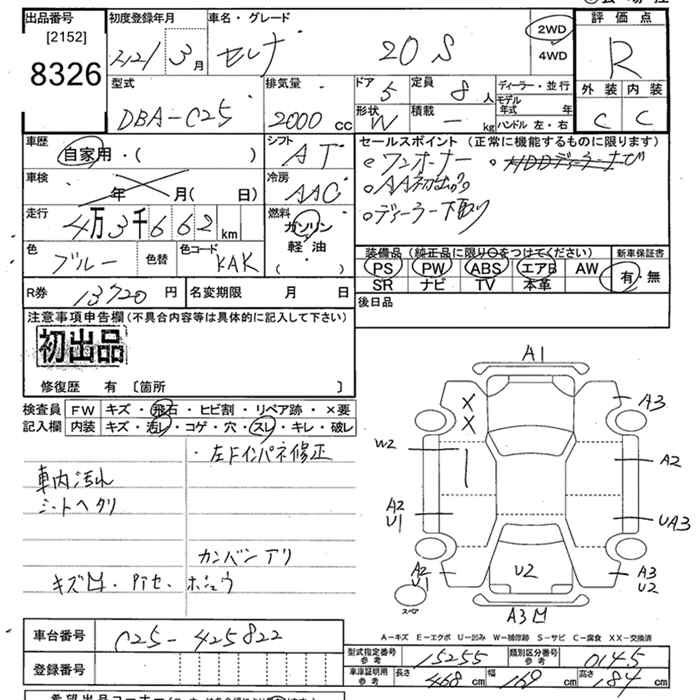 出品番号
[2152]
8326
初度登録年月
H21 3月
車名・グレード
セレナ 20S
2WD
4WD
評価点
R
外装 内装
C C
型式
DBA-C25
排気量
2000 cc
ドア 5
定員 8 人
形状 W
積載 - kg
ディーラー・並行
モデル年式 年
ハンドル 左・右
車歴
自家用・( )
シフト
AT
セールスポイント (正常に機能するものに限ります)
ワンオーナー
HDDディーラーナビ
AA初出品
ディーラー下取り
車検
年 月( 日)
冷房
AAC
走行
4万3千662 km
燃料
ガソリン
軽油
( )
色
ブルー
色替
色コード
KAK
装備品 (純正品に限り○をつけてください)
新車保証書
PS PW ABS エアB AW
SR ナビ TV 本革
有・無
R券 13720 円
名変期限 月 日
後日品
注意事項申告欄(不具合内容等は具体的に記入して下さい)
初出品
修復歴 有 〔箇所 〕
検査員 FW キズ・飛石・ヒビ割・リペア跡・×要
記入欄 内装 キズ・汚レ・コゲ・穴・スレ・キレ・破レ
左Fインパネ修正
車内汚れ
シートヘタリ
カンバンアリ
ホシュウ
A1
X
X
A3
W2
A2
A2
U1
UA3
A2
U1
U2
A3
U2
スペア
A3
A-キズ E-エクボ U-凹み W-補修跡 S-サビ C-腐食 XX-交換済
車台番号
C25-425822
登録番号
型式指定番号
参考
15255
類別区分番号
参考
0145
車庫証明用
参考
長さ 468 cm
幅 169 cm
高さ 184 cm